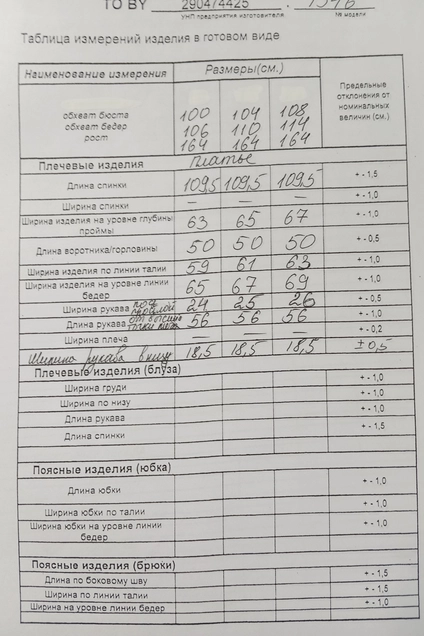 ТО BY 290474425
УНП предприятия изготовителя № модели
Таблица измерений изделия в готовом виде
Наименование измерения Размеры(см.) Предельные отклонения от номинальных величин (см.)
обхват бюста 100 104 108
обхват бедер 106 110 114
рост 164 164 164
Плечевые изделия Платье
Длина спинки 109,5 109,5 109,5 + - 1,5
Ширина спинки — — — + - 1,0
Ширина изделия на уровне глубины проймы 63 65 67 + - 1,0
Длина воротника/горловины 50 50 50 + - 0,5
Ширина изделия по линии талии 59 61 63 + - 1,0
Ширина изделия на уровне линии бедер 65 67 69 + - 1,0
Ширина рукава под проймой 24 25 26 + - 0,5
Длина рукава от высшей точки 56 56 56 + - 1,0
Ширина плеча — — — + - 0,2
Ширина рукава внизу 18,5 18,5 18,5 ± 0,5
Плечевые изделия (блуза)
Ширина груди + - 1,0
Ширина по низу + - 1,0
Длина рукава + - 1,0
Длина спинки + - 1,5
Поясные изделия (юбка)
Длина юбки + - 1,0
Ширина юбки по талии + - 1,0
Ширина юбки на уровне линии бедер + - 1,0
Поясные изделия (брюки)
Длина по боковому шву + - 1,5
Ширина по линии талии + - 1,5
Ширина на уровне линии бедер + - 1,0